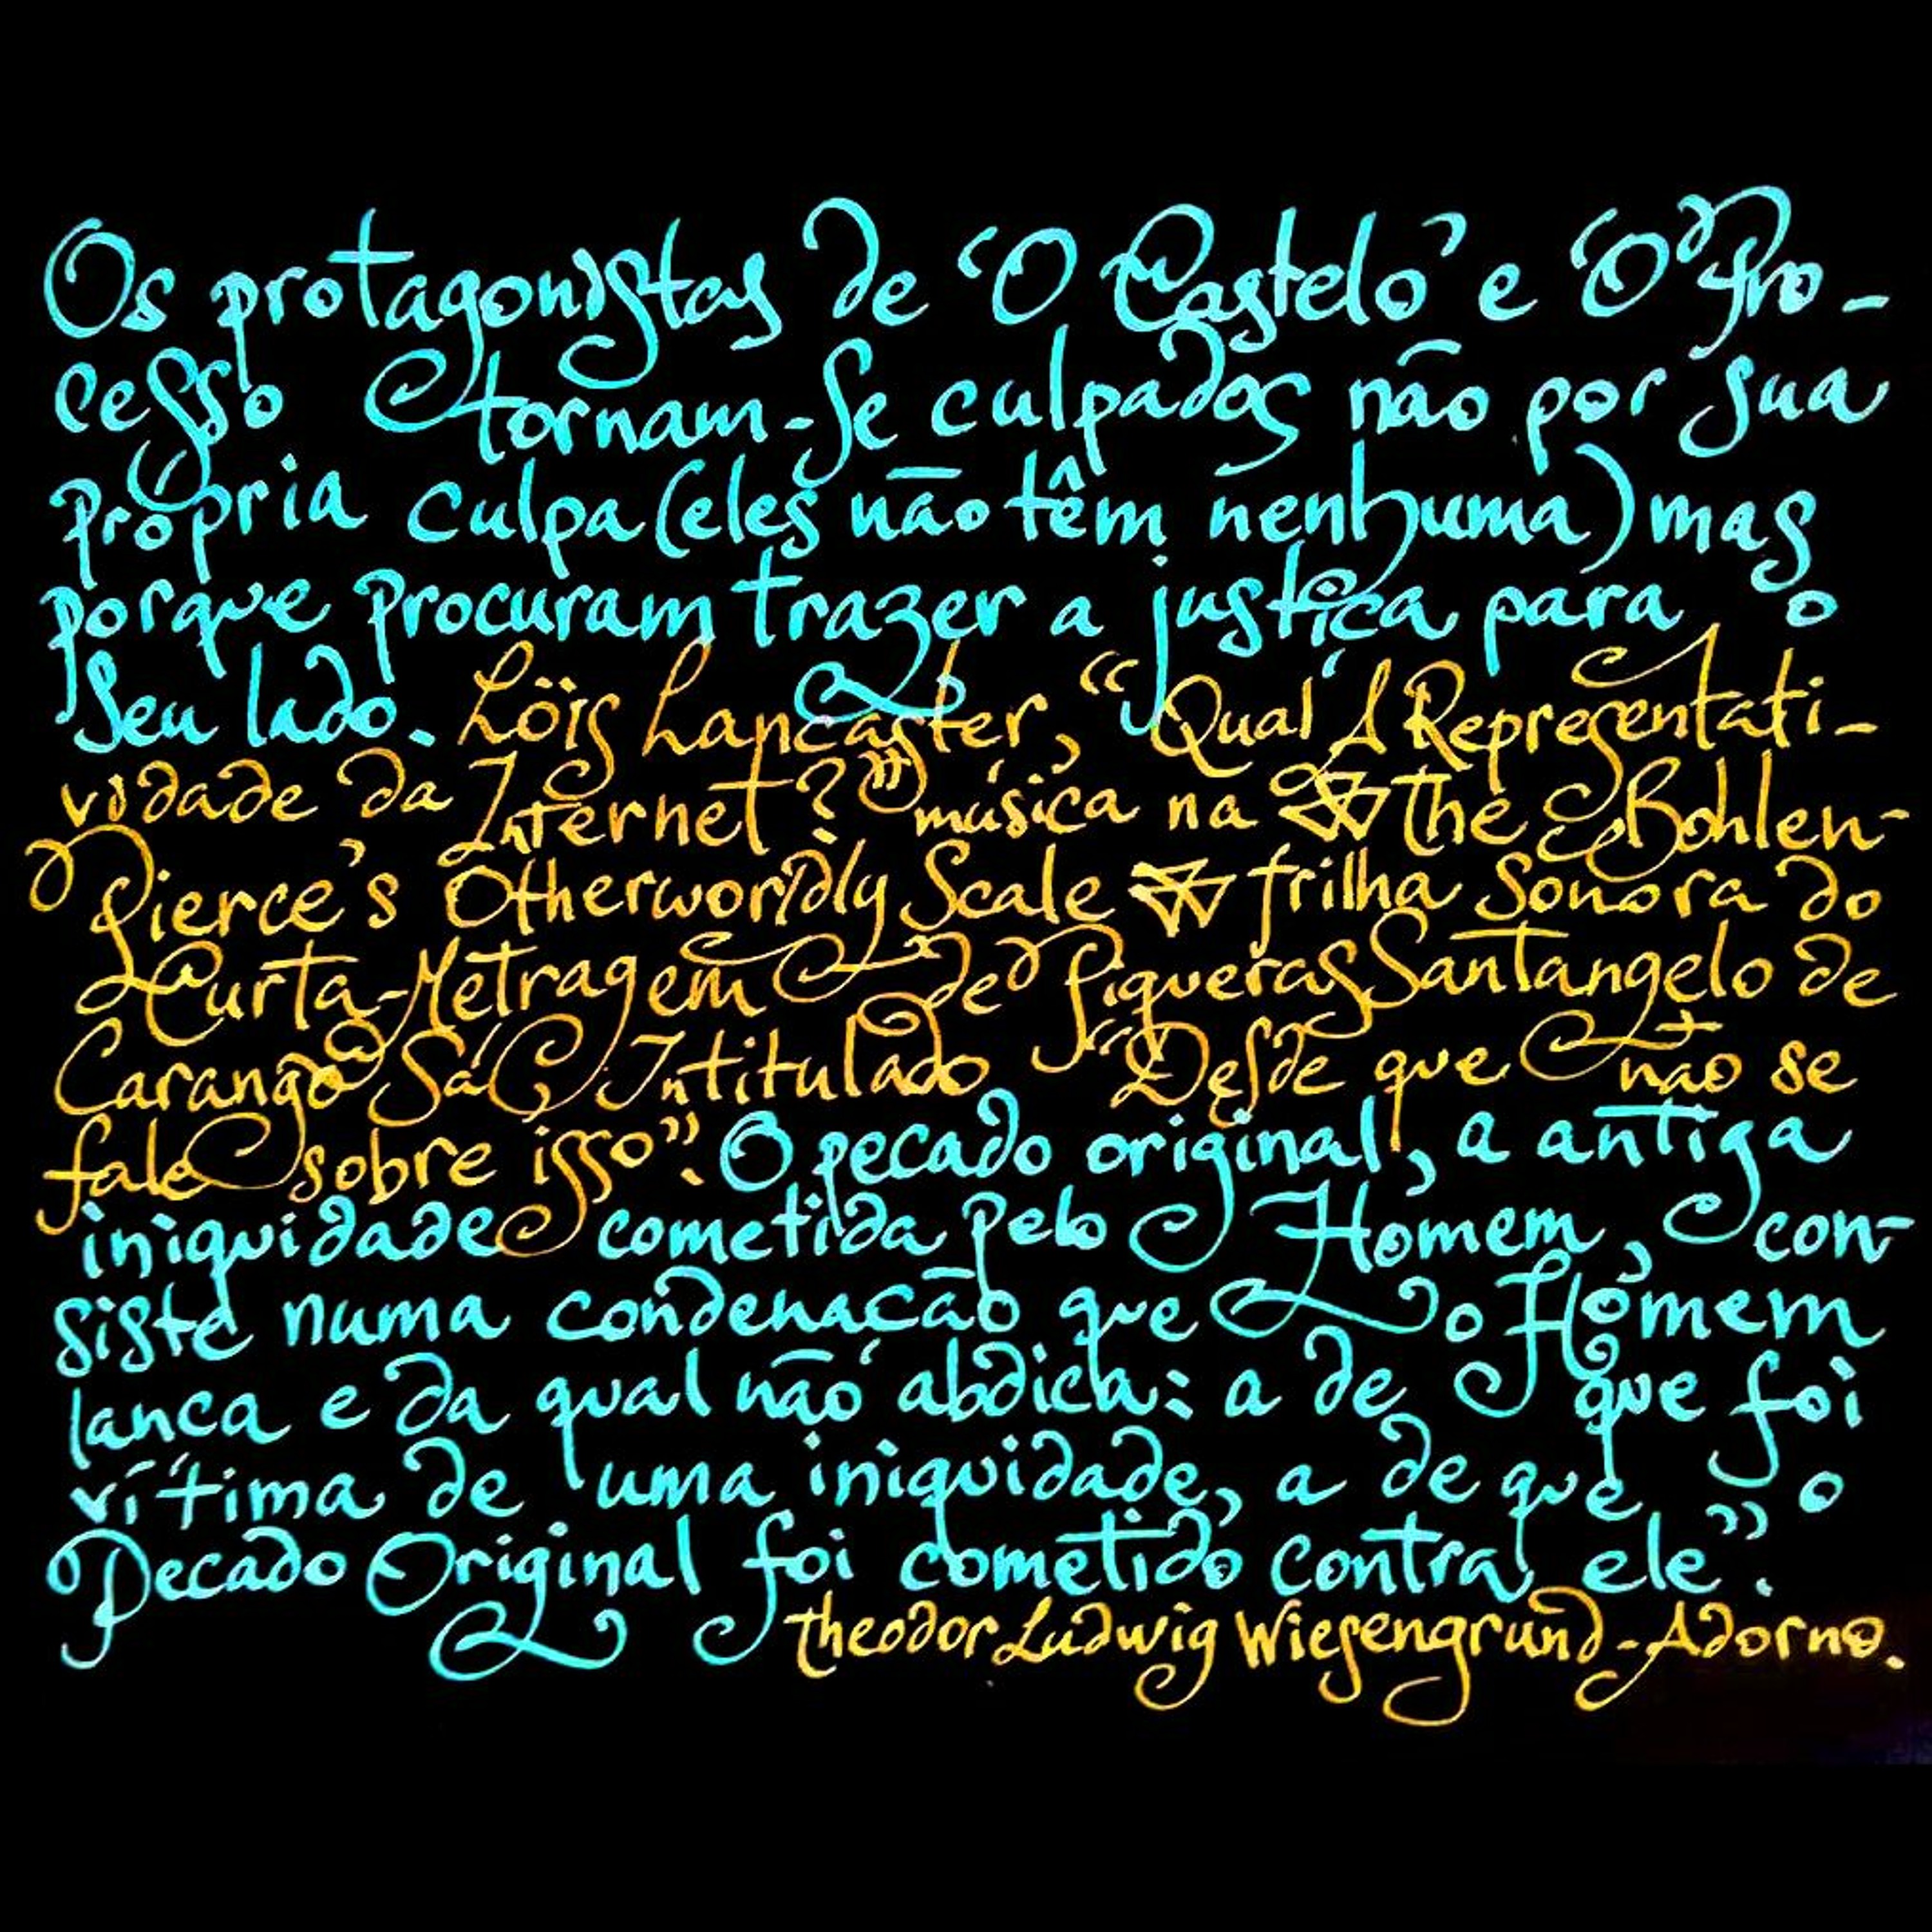 Os protagonistas de 'O Castelo' e 'O Pro-
cesso tornam-se culpados não por sua
própria culpa (eles não têm nenhuma) mas
porque procuram trazer a justiça para o
seu lado. Löis Lancaster, "Qual A Representati-
vidade da Internet?" música na The Bohlen-
Pierce's Otherworldly Scale trilha sonora do
Curta-Metragem de Piqueras Santangelo de
Carango Sá, Intitulado "Desde que não se
fale sobre isso". O pecado original, a antiga
iniquidade cometida pelo Homem, con-
siste numa condenação que o Homem
lança e da qual não abdica: a de que foi
vítima de uma iniquidade, a de que o
Pecado Original foi cometido contra ele".
Theodor Ludwig Wiesengrund-Adorno.